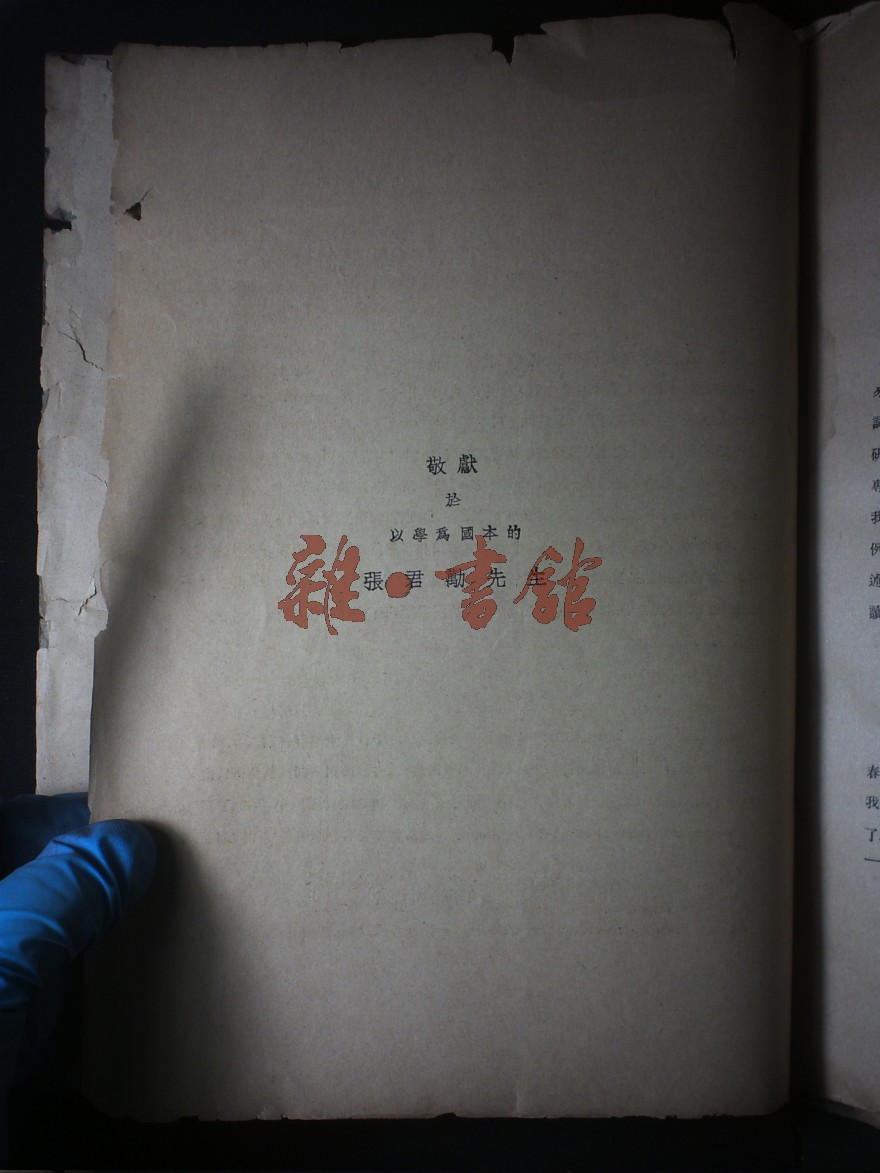 敬獻
於
以學爲國本的
張君勱先生
雜·書館
春
我
了